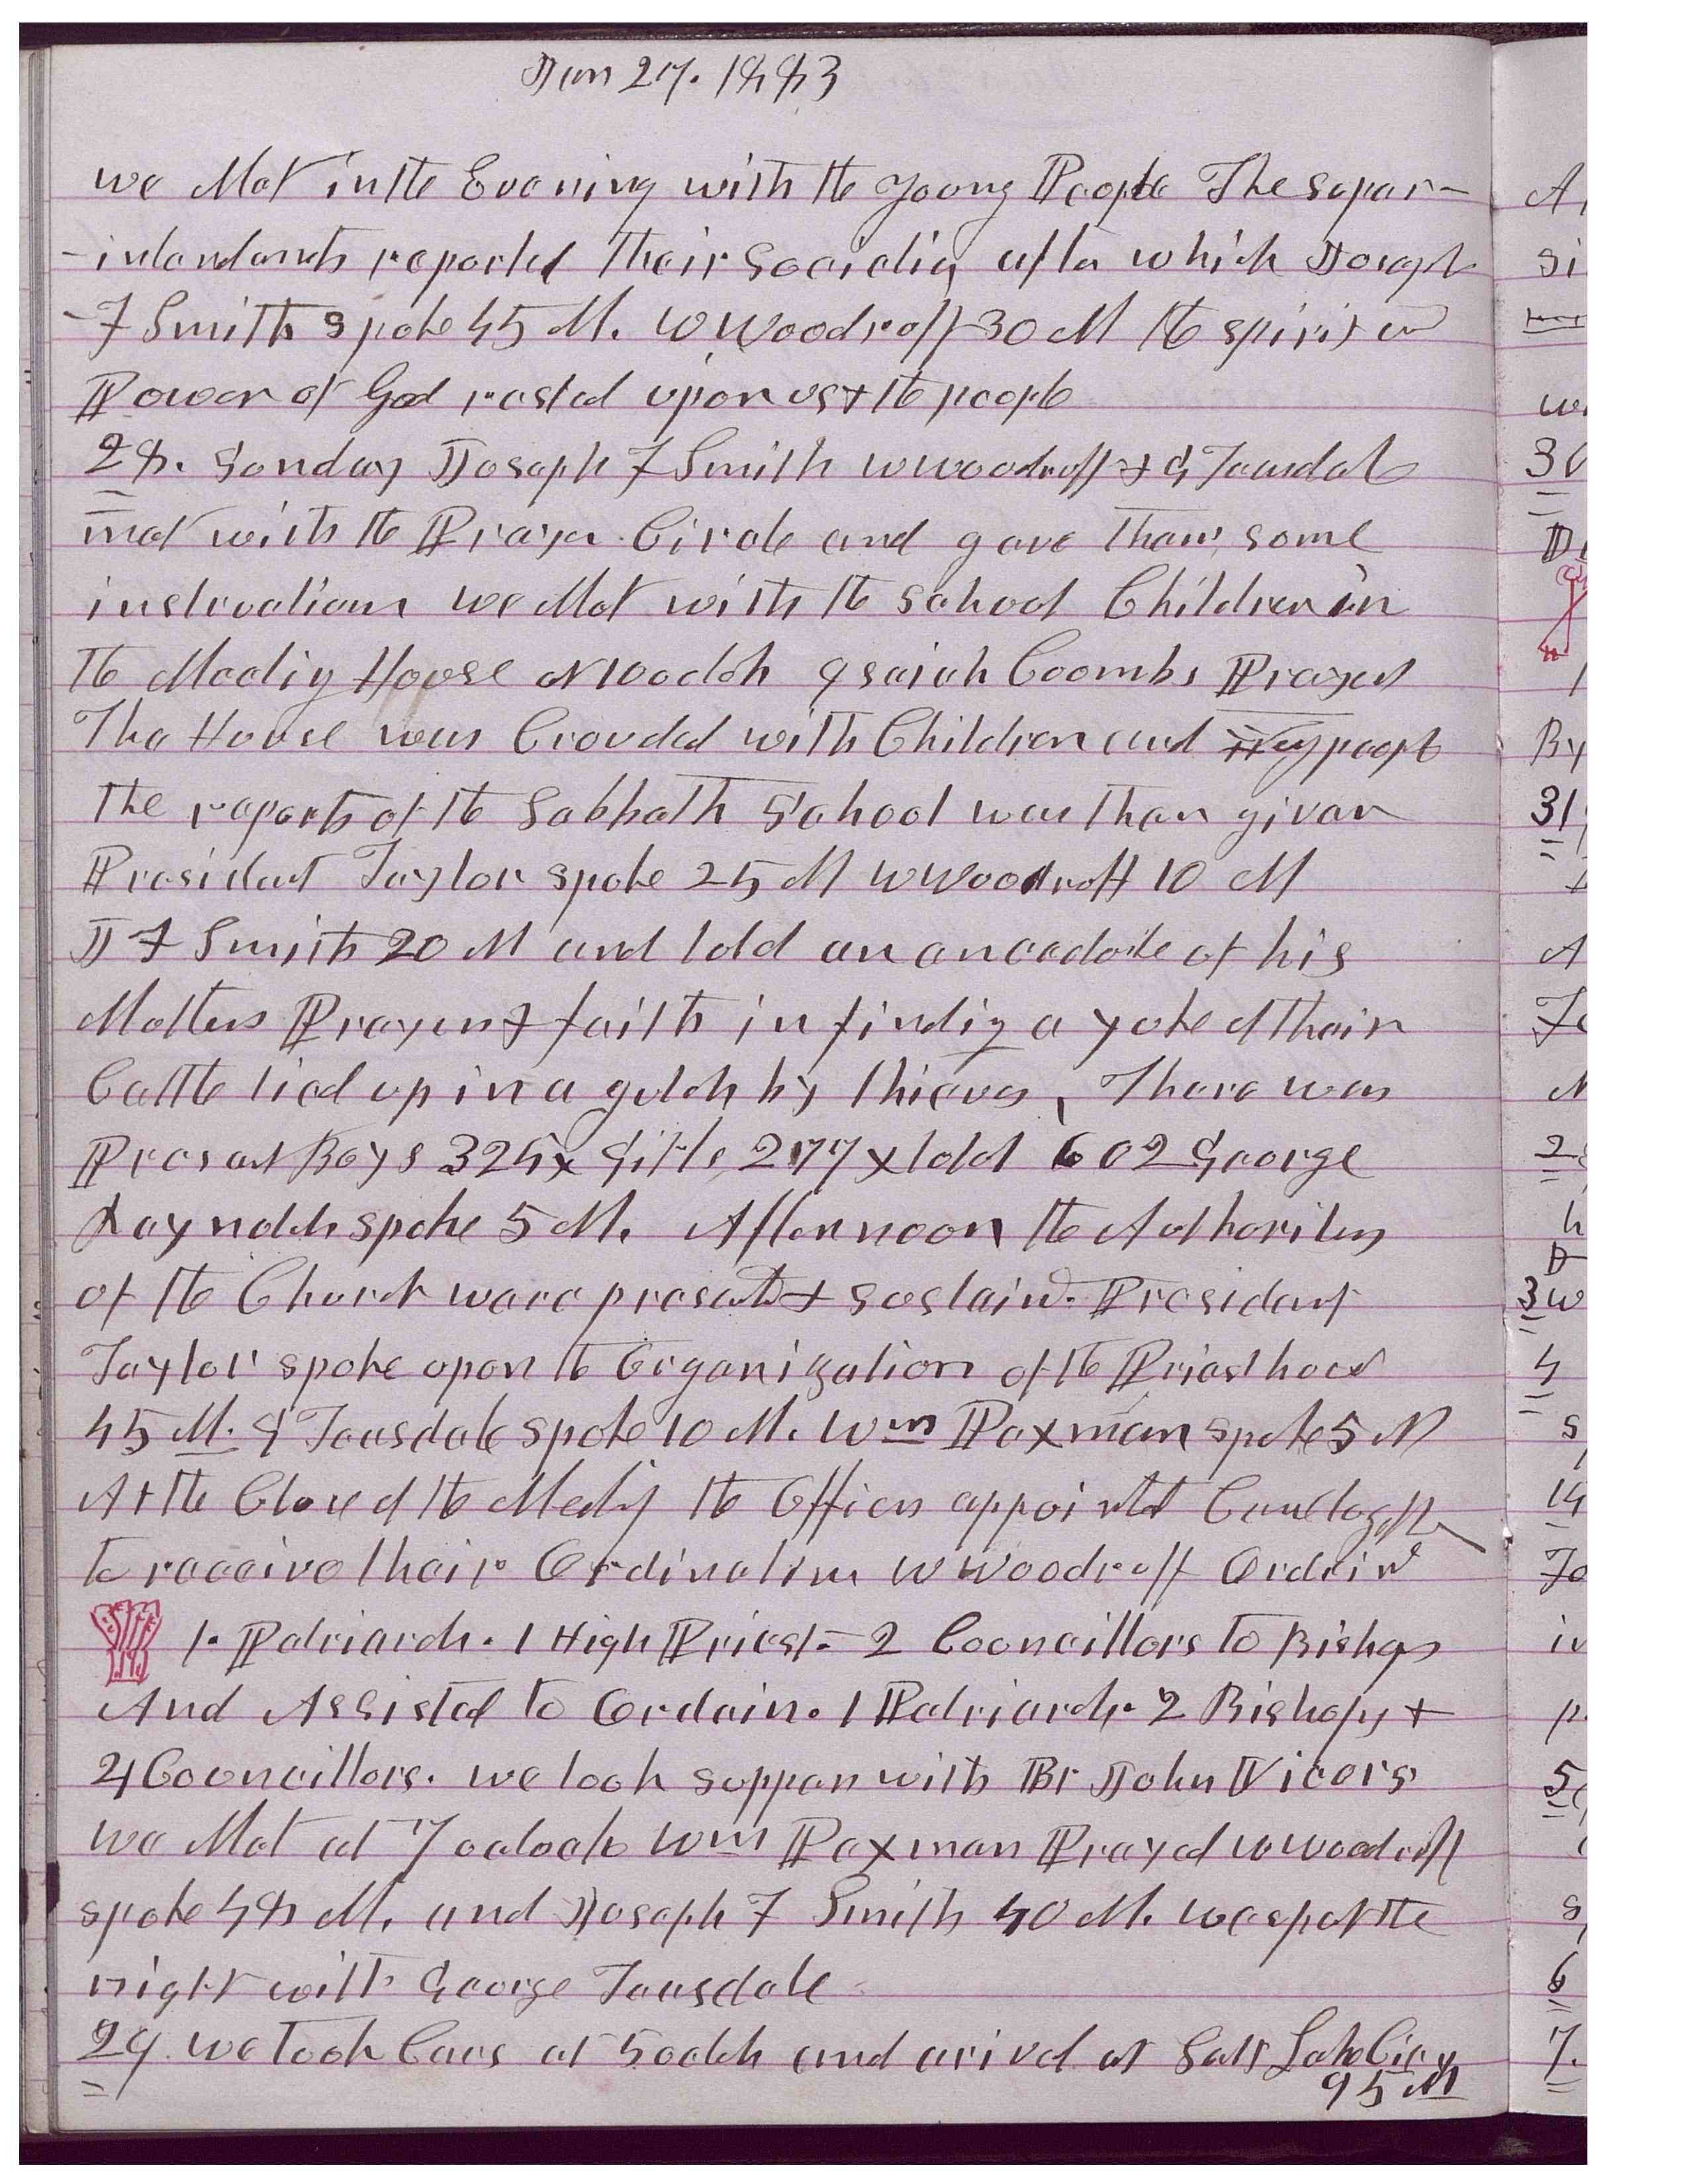 Jan 27. 1883
we Met in the Evening with the Young People The super-
-intendants reported Their Societies after which Joseph
-F Smith spoke 45 M. W Woodruff 30 M the spirit and
Power of God rested upon us & the people
28. Sunday Joseph F Smith W Woodruff & G Teasdale
met with the Prayer Circle and gave them some
instructions we Met with the School Children in
the Meeting House at 10 oclok Isaiah Coombs Prayed
The House was Crouded with Children and people
The reports of the Sabbath School was than given
President Taylor spoke 25 M W Woodruff 10 M
J F Smith 20 M and told an anecdote of his
Mothers Prayer & faith in finding a yoke of their
Cattle tied up in a gulch by thieves, There was
Present Boys 325 x Girls, 277 x total 602 George
Raynolds spoke 5 M. Afternoon the Authorities
of the Church ware presented & sustaind. President
Taylor spoke upon the Organization of the Priesthood
45 M. G Teasdale spoke 10 M. Wm Paxman spoke 5 M
At the Close of the Meeting the Officers appointed Came
to receive thair Ordinations W Woodruff Ordaind
1. Patriarch. 1 High Priest- 2 Councillors to Bishops
And Assisted to Ordain. 1 Patriarch. 2 Bishops &
4 Councillors. we took supper with Br John Vicors
we Met at 7 oclock Wm Paxman Prayed W Woodruff
spoke 48 M. and Joseph F Smith 40 M. we spent the
night with George Teasdale
29. we took Cars at 5 oclok and arived at Salt Lake City
95 M